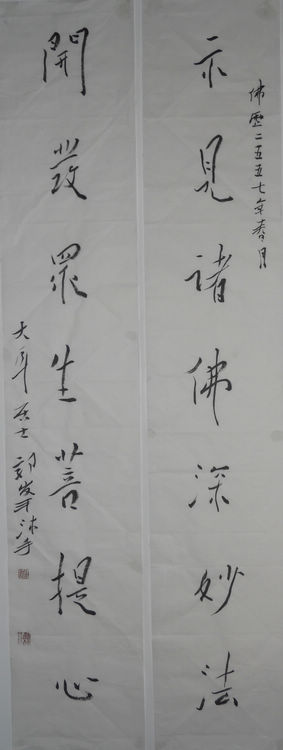 佛曆二五五七年春月
示見諸佛深妙法
開發眾生菩提心
居士 沐手